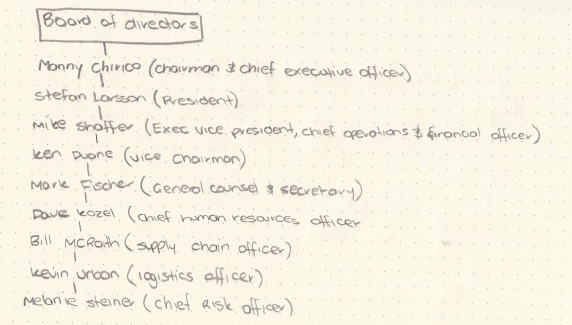 Board of directors
Manny Chirico (chairman & chief executive officer)
Stefan Larsson (President)
Mike Shaffer (Exec vice president, chief operations & financial officer)
Ken Duane (vice chairman)
Mark Fischer (General counsel & secretary)
Dave Kozel (chief human resources officer
Bill McRaith (supply chain officer)
Kevin Urban (logistics officer)
Melanie Steiner (chief risk officer)